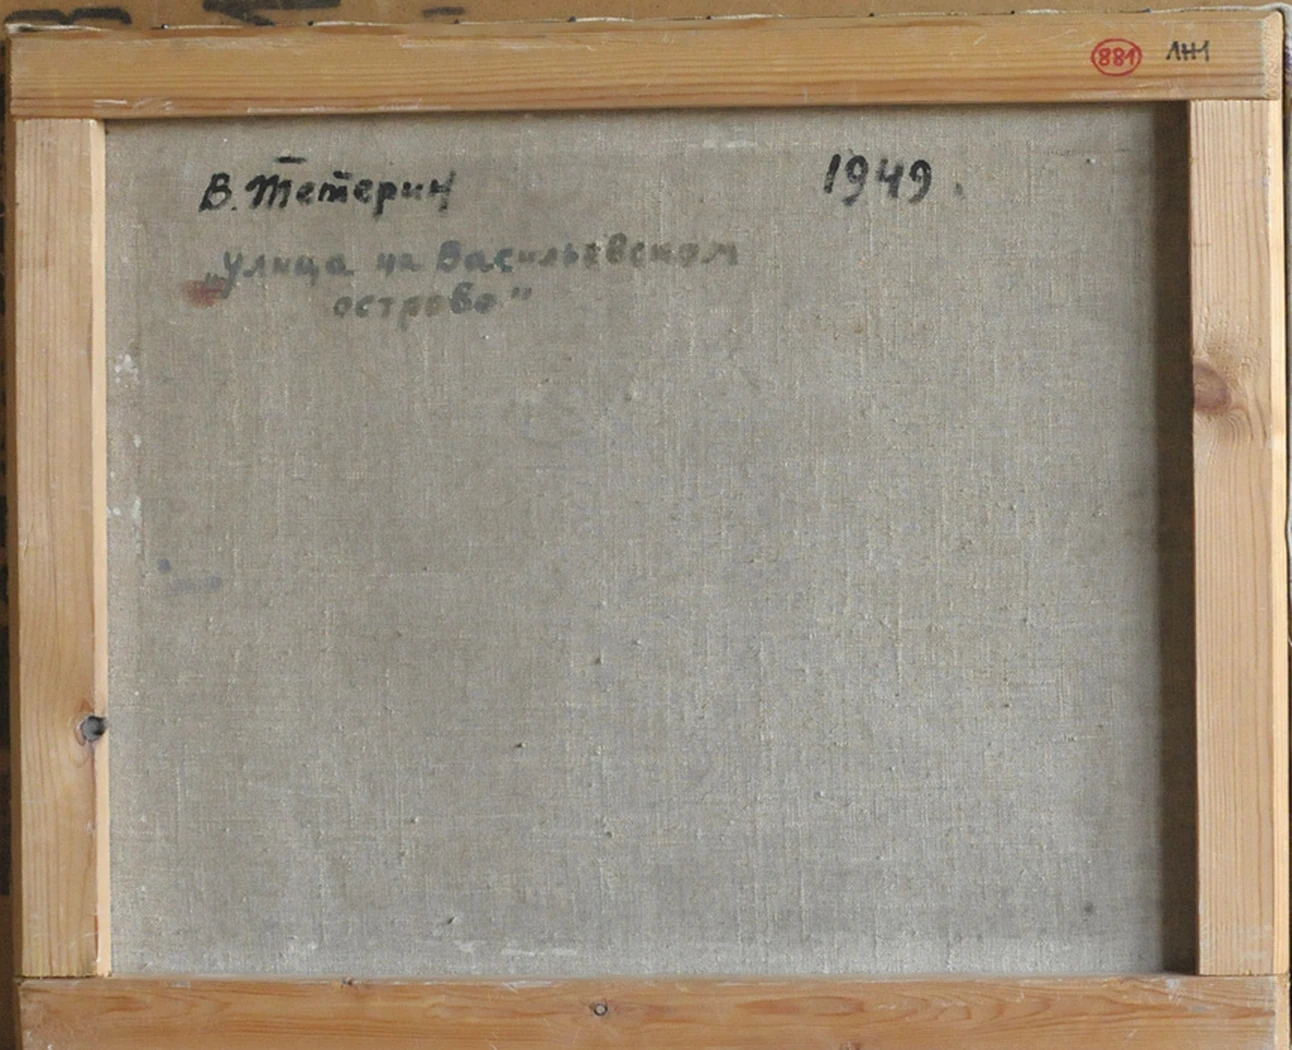 881 ЛН1
В. Тетерин 1949.
„Улица на Васильевском
острове"